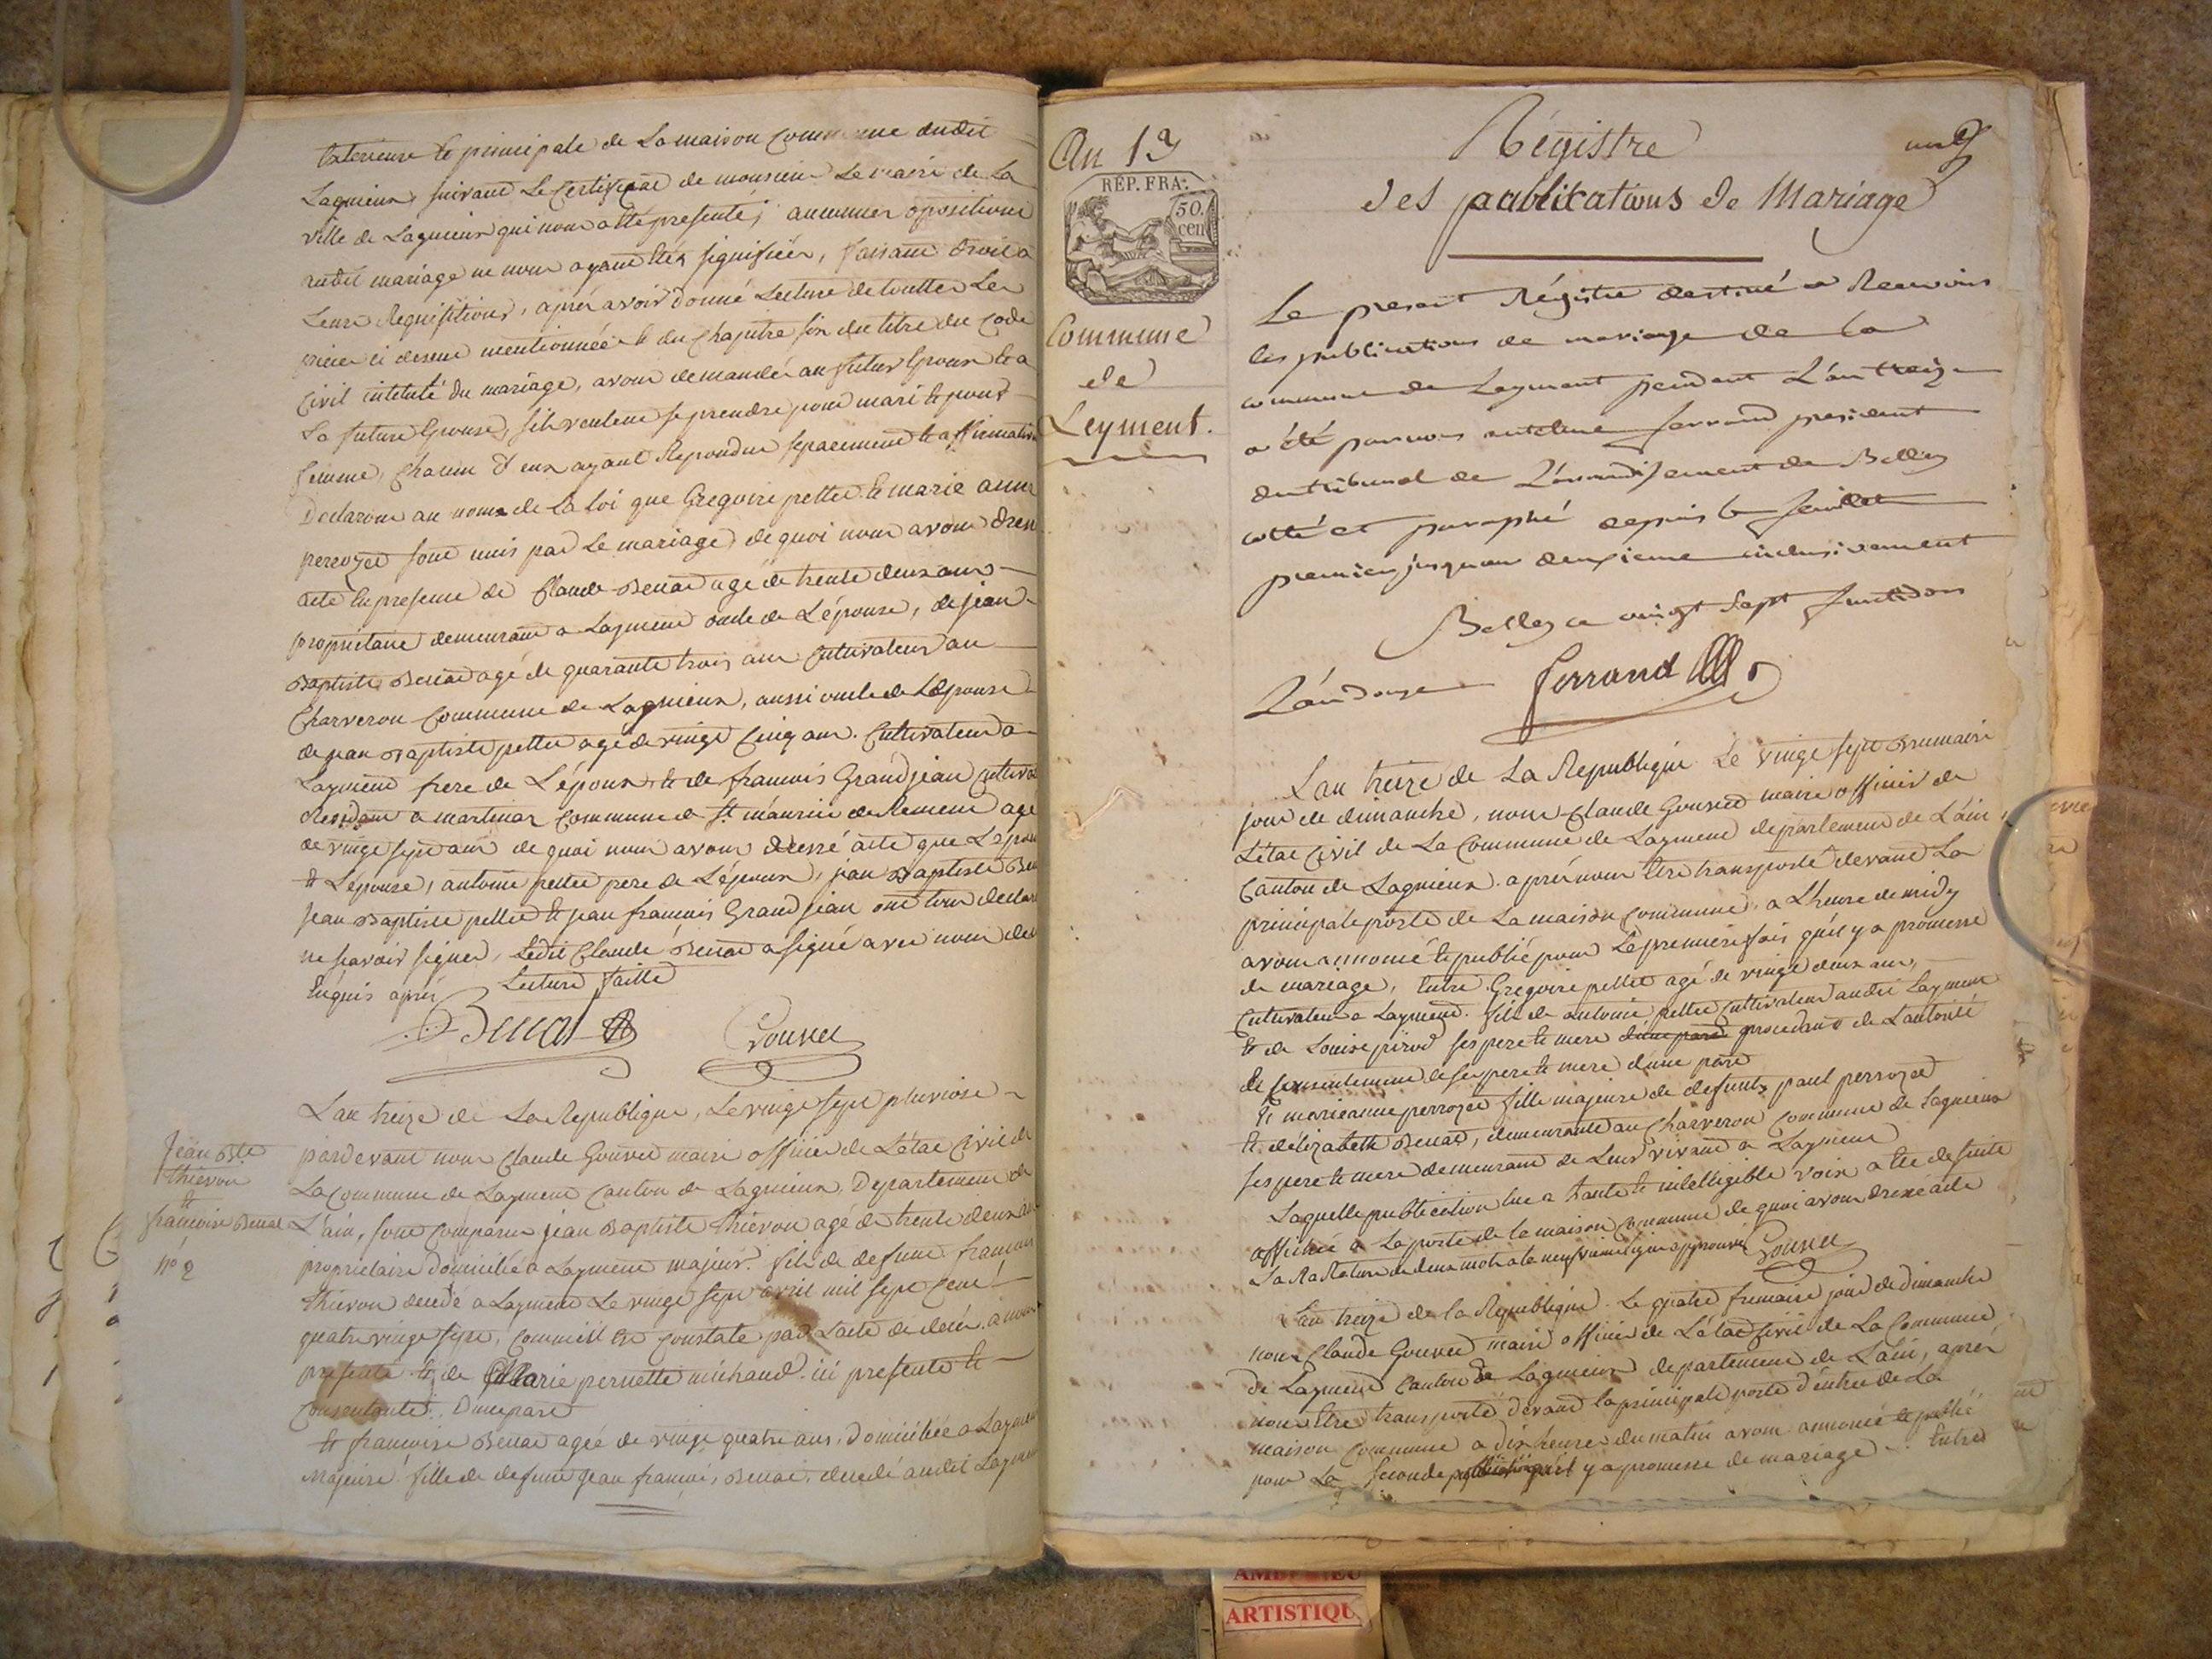 Exterieure et principale de La maison Commune dudit
Lagnieux, suivant Le Certificat de monsieur Le maire de La
ville de Lagnieux qui nous a été presenté; aucunnes opositions
audit mariage ne nous ayant étés signifiées, faisant droit a
Leurs Requisitions, après avoir donné Lecture de touttes Les
pieces ci dessus mentionnées et du Chapitre six du titre du Code
Civil intitulé du mariage, avons demandés au futur Epoux et a
La future Epouse, s'ils veulent se prendre pour mari et pour
femme, Chacun d'eux ayant Repondus separement et affirmativ
Declarons au nom de La Loi que Gregoire pettet et marie anne
perrozet sont unis par Le mariage, de quoi nous avons dressé
acte En presence de Claude Benat agé de trente deux ans
propriétaire demeurant a Layment oncle de L'épouse, de jean
Baptiste Benat agé de quarante trois ans Cultivateur au
Charveron Commune de Lagnieux, aussi oncle de L'épouse
de jean Baptiste pettet agé de vingt Cinq ans. Cultivateur a
Layment frere de L'époux, et de francois Grandjean Cultiva
Residant a martinaz Commune de St. maurice de Remens agé
de vingt sept ans de quoi nous avons dressé acte que L'époux
et L'épouse, antoine pettet pere de L'époux, jean Baptiste Ben
Jean Baptiste pettet et jean francois Grandjean ont tous declaré
ne scavoir signer, Ledit Claude Benat a signé avec nous de
Enquis après Lecture faitte
Benat Gouvet
L'an treize de La Republique, Le vingt sept pluviose
Jean Bte
thievon
et
francoise Benat
n° 2
pardevant nous Claude Gouvet maire officier de L'état Civil de
La Commune de Layment Canton de Lagnieux, Departement de
L'ain, sont Comparus jean Baptiste thievon agé de trente deux ans
propriétaire domicilié a Layment majeur. fils de defunt francois
thievon decedé a Layment Le vingt sept avril mil sept Cent
quatre vingt sept, Comme il est Constaté par L'acte de deces a nous
presenté et de Marie pernette michaud. ici presente et
Consentante. D'une part
et francoise Benat agée de vingt quatre ans, domiciliée a Layment
Majeure fille de defunt jean francois Benat, decedé audit Layment
An 13
RÉP. FRA.
50.
cen
Commune
de
Leyment.
Régistre
des publications de Mariage
Le present Régistre destiné a Recevoir
les publications de mariage de la
commune de Layment pendant L'an treize
a été par nous anthelme ferrand president
du tribunal de L'arrondissement de Belley
cotté et paraphé depuis le feuillet
premier jusqu'au deuxieme inclusivement
Belley ce vingt sept fructidor
L'an douze ferrand
L'an treize de La Republique Le vingt sept Brumaire
jour de dimanche, nous Claude Gouvet maire officier de
L'état Civil de La Commune de Layment departement de L'ain,
Canton de Lagnieux. après nous être transporté devant La
principale porte de La maison Commune, a L'heure de midy
avons annoncé et publié pour La premiere fois qu'il y a promesse
de mariage, Entre Gregoire pettet agé de vingt deux ans,
Cultivateur a Layment. fils de antoine pettet Cultivateur audit Layment
et de Louise pirod ses pere et mere d'une part procedant de L'autorité
et Consentement de ses pere et mere d'une part
et marieanne perrozet fille majeure de defunts paul perrozet
et d'élizabeth Benat, demeurante au Charveron Commune de Lagnieux
ses pere et mere demeurant de Leur vivant a Layment
Laquelle publication lue a haute et intelligible voix a été de suite
affichée a La porte de la maison Commune de quoi avons dressé acte
La Rature de deux mots a la neufvieme ligne approuvée Gouvet
L'an treize de la Republique. Le quatre frimaire jour de dimanche
nous Claude Gouvet maire officier de L'état Civil de La Commune
de Layment Canton de Lagnieux departement de L'ain, après
nous être transporté devant la principale porte d'entree de La
maison Commune a dix heures du matin avons annoncé et publié
pour La seconde qu'il y a promesse de mariage Entre
ARTISTIQU